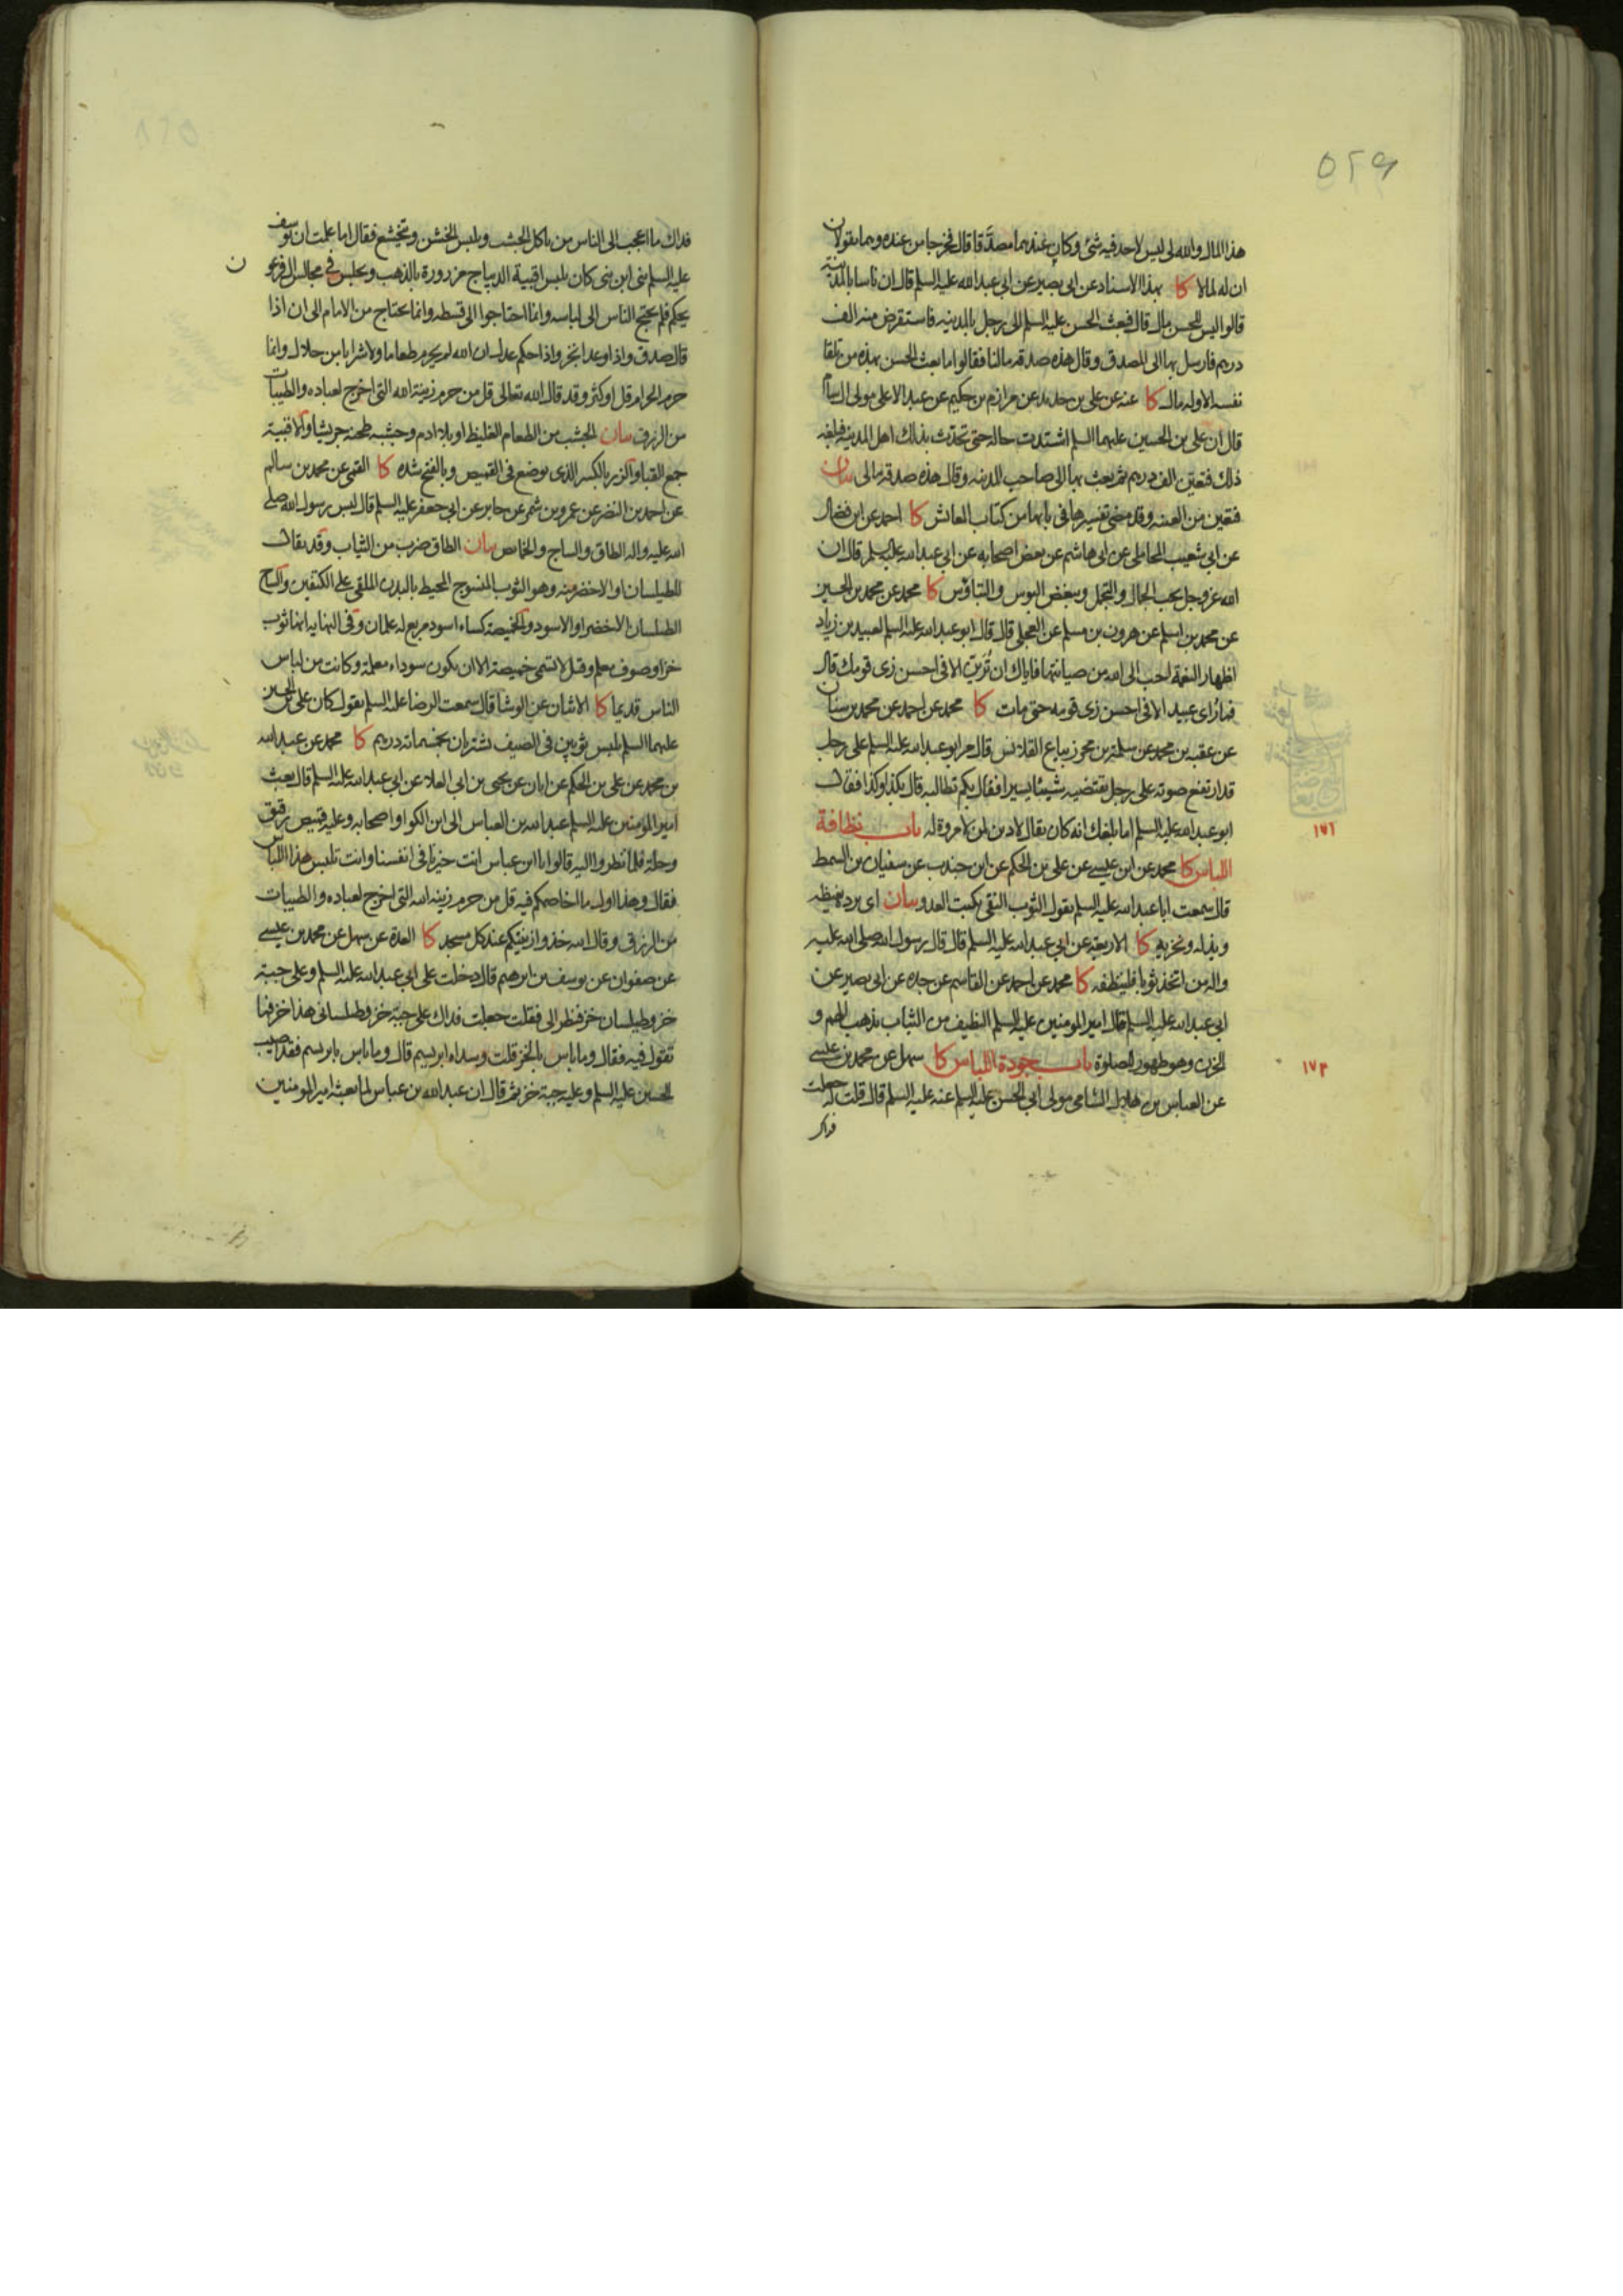 ٥٢٩
هذا المال والله لى ليس لاحد فيه شئ وكان عندهما مصدَّقا قال فخرجا من عنده وهما يقولان
ان له لمالا كا بهذا الاسناد عن ابى بصير عن ابي عبد الله عليه السلم قال ان ناسا بالمدينة
قالوا ليس للحسن مال قال فبعث الحسن عليه السلم الى رجل بالمدينه فاستقرض منه الف
درهم فارسل بها الى المصدق وقال هذه صدقه مالنا فقالوا ما بعث الحسن بهذه من تلقا
نفسه الا وله مال كا عنه عن على بن حديد عن مرازم بن حكيم عن عبد الاعلى مولى ال سام
قال ان على بن الحسين عليهما السلم اشتدت حاله حتى تحدثت بذلك اهل المدينه فبلغه
ذلك فتعين الف درهم ثم بعث بها الى صاحب المدينه وقال هذه صدقه مالى بيان
فتعين من العينه وقد مضى تفسيرها فى بابها من كتاب المعائش كا احمد عن ابن فضال
عن ابي شعيب المحاملى عن ابى هاشم عن بعض اصحابه عن ابى عبد الله عليه السلم قال ان
الله عز وجل يحب الجمال والتجمل ويبغض البوس والتباؤس كا محمد عن محمد بن الحسين
عن محمد بن اسلم عن هرون بن مسلم عن العجلى قال قال ابو عبد الله عليه السلم لعبيد بن زياد
اظهار النعمة احب الى الله من صيانتها فاياك ان تُرَين الا فى احسن زى قومك قال
فما رُاى عبيد الا فى احسن زى قومه حتى مات كا محمد عن احمد عن محمد بن سنان
عن عقبه بن محمد عن سلمة بن محرز بياع القلانس قال مر ابو عبد الله عليه السلم على رجل
قد ارتفع صوته على رجل يقتضيه شيئا يسيرا فقال بكم تطالبه قال بكذا وكذا فقال
ابو عبد الله عليه السلم اما بلغك انه كان يقال لا دين لمن لا مروة له باب نظافة
١٧١
اللباس كا محمد عن ابن عيسى عن على بن الحكم عن ابن جندب عن سفيان بن السمط
قال سمعت ابا عبد الله عليه السلم يقول الثوب النقى يكبت العدو بيان اى يرده بغيظه
ويذله ويخزيه كا الاربعة عن ابي عبد الله عليه السلم قال قال رسول الله صلى الله عليه
واله من اتخذ ثوبا فلينظفه كا محمد عن احمد عن القاسم عن جده عن ابى بصير عن
ابي عبد الله عليه السلم قال امير المومنين عليه السلم النظيف من الثياب يذهب الهم و
الحزن وهو طهور للصلوة باب جودة اللباس كا سهل عن محمد بن عيسى
١٧٢
عن العباس بن هلال الشامى مولى ابي الحسن عليه السلم عنه عليه السلم قال قلت له جعلت
فداك
فداك ما اعجب الى الناس من ياكل الجشب ويلبس الخشن ويتخشع فقال اما علمت ان يوسف
عليه السلم نبى ابن نبى كان يلبس اقبية الديباج مزرورة بالذهب ويجلس فى مجالس ال فرعو
ن
يحكم فلم يحتج الناس الى لباسه وانما احتاجوا الى قسطه وانما يحتاج من الامام الى ان اذا
قال صدق واذا وعد انجز واذا حكم عدل ان الله لم يحرم طعاما ولا شرابا من حلال وانما
حرم الحرام قل او كثر وقد قال الله تعالى قل من حرم زينة الله التى اخرج لعباده والطيبات
من الرزق بيان الجشب من الطعام الغليظ او بلا ادم وجشبه طحنه جريشا والاقبية
جمع القباء والزر بالكسر الذى يوضع فى القميص وبالفتح شده كا القمى عن محمد بن سالم
عن احمد بن النضر عن عمرو بن شمر عن جابر عن ابي جعفر عليه السلم قال لبس رسول الله صلى
الله عليه واله الطاق والساج والخمايص بيان الطاق ضرب من الثياب وقد يقال
للطيلسان او الاخضر منه وهو الثوب المنسوج المحيط بالبدن الملقى على الكتفين والساج
الطيلسان الاخضر او الاسود والخميصة كساء اسود مربع له علمان وفى النهايه انها ثوب
خز او صوف معلم وقيل لا تسمى خميصة الا ان يكون سوداء معلمة وكانت من لباس
الناس قديما كا الاثنان عن الوشا قال سمعت الرضا عليه السلم يقول كان على بن الحسين
عليهما السلم يلبس ثوبين فى الصيف يشتريان بخمسمائة درهم كا محمد عن عبد الله
بن محمد عن على بن الحكم عن ابان عن يحيى بن ابى العلا عن ابي عبد الله عليه السلم قال بعث
امير المومنين عليه السلم عبد الله بن العباس الى ابن الكوا واصحابه وعليه قميص رقيق
وحلة فلما نظروا اليه قالوا يا ابن عباس انت خيرنا فى انفسنا وانت تلبس هذا اللباس
فقال وهذا اول ما اخاصمكم فيه قل من حرم زينه الله التى اخرج لعباده والطيبات
من الرزق وقال الله خذوا زينتكم عند كل مسجد كا العدة عن سهل عن محمد بن عيسى
عن صفوان عن يوسف بن ابرهيم قال دخلت على ابي عبد الله عليه السلم وعلى جبة
خز وطيلسان خز فنظر الى فقلت جعلت فداك على جبة خز وطيلسانى هذا خز فما
تقول فيه فقال وما باس بالخز قلت وسداه ابريسم قال وما باس بابريسم فقد اصيب
الحسين عليه السلم وعليه جبة خز ثم قال ان عبد الله بن عباس لما بعثه امير المومنين